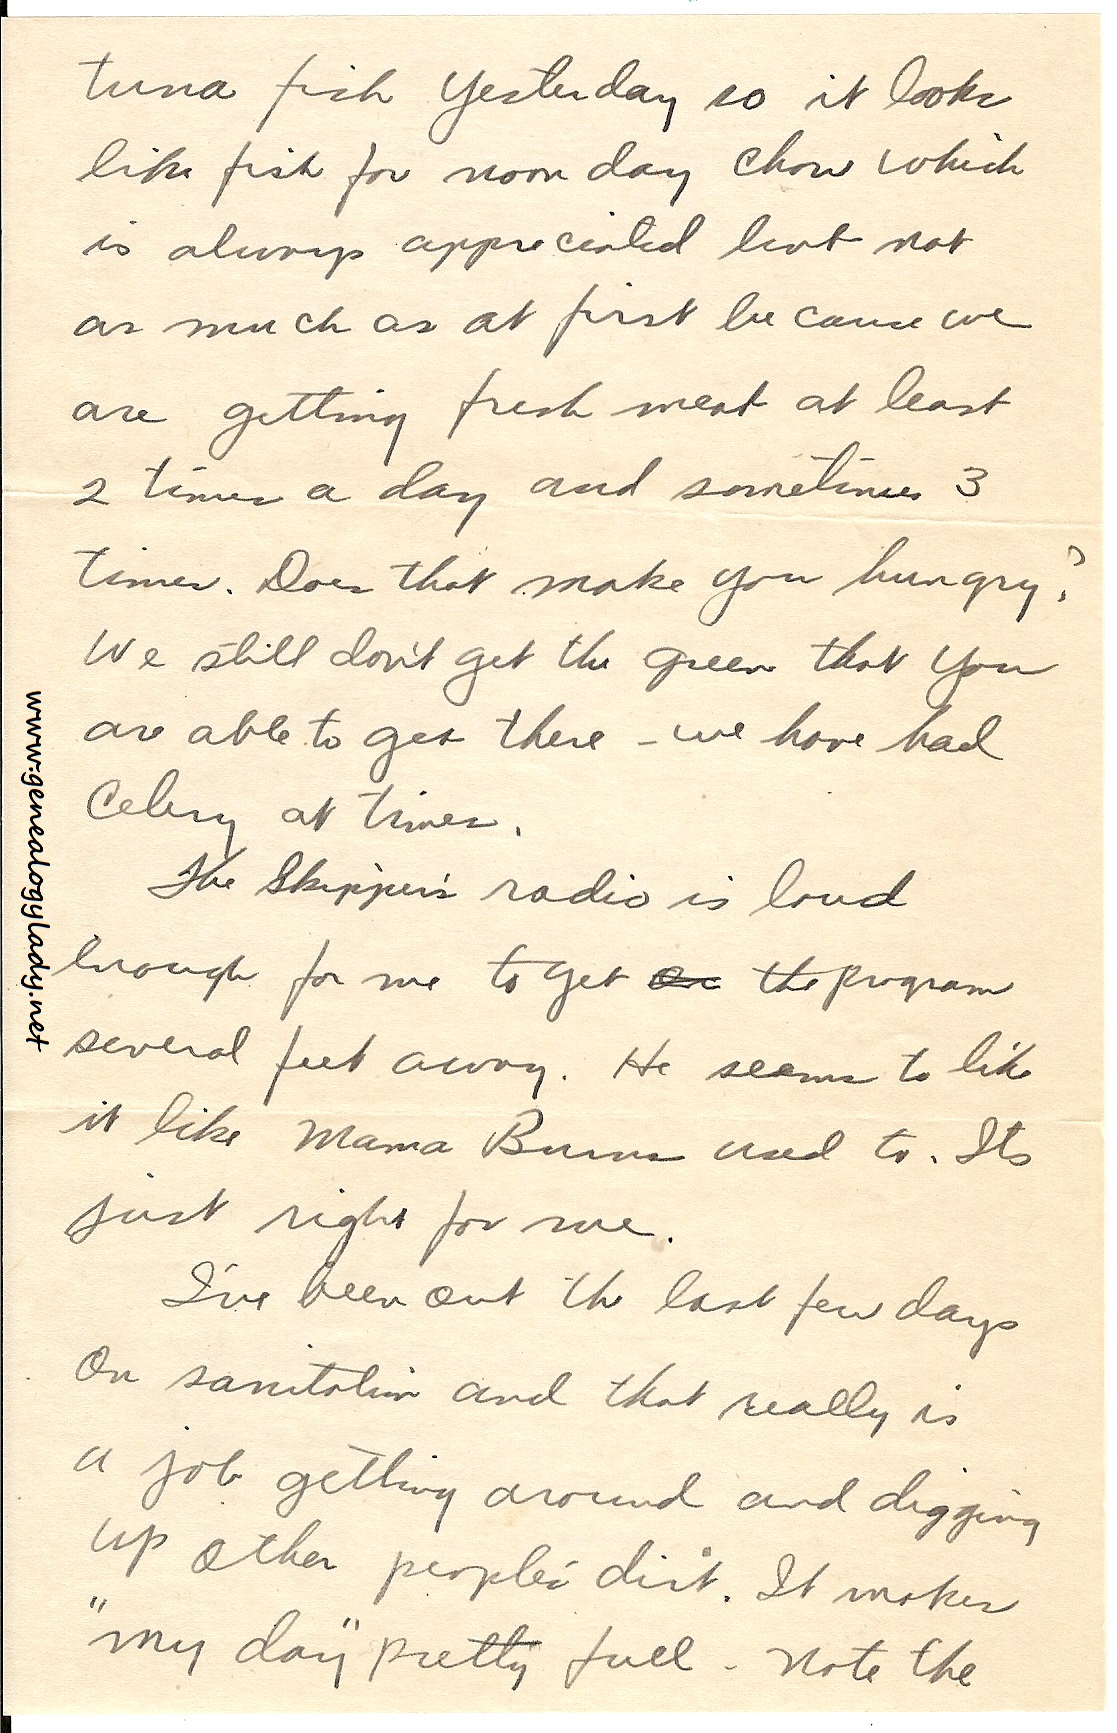 tuna fish yesterday so it looks
like fish for noon day chow which
is always appreciated but not
as much as at first because we
are getting fresh meat at least
2 times a day and sometimes 3
times. Does that make you hungry?
We still don't get the green that you
are able to get there - we have had
Celery at times.
The Skipper's radio is loud
enough for me to get the program
several feet away. He seems to like
it like Mama Burns used to. Its
just right for me.
I've been out the last few days
on sanitation and that really is
a job getting around and digging
up other people's dirt. It makes
"my day" pretty full - note the
www.genealogylady.net